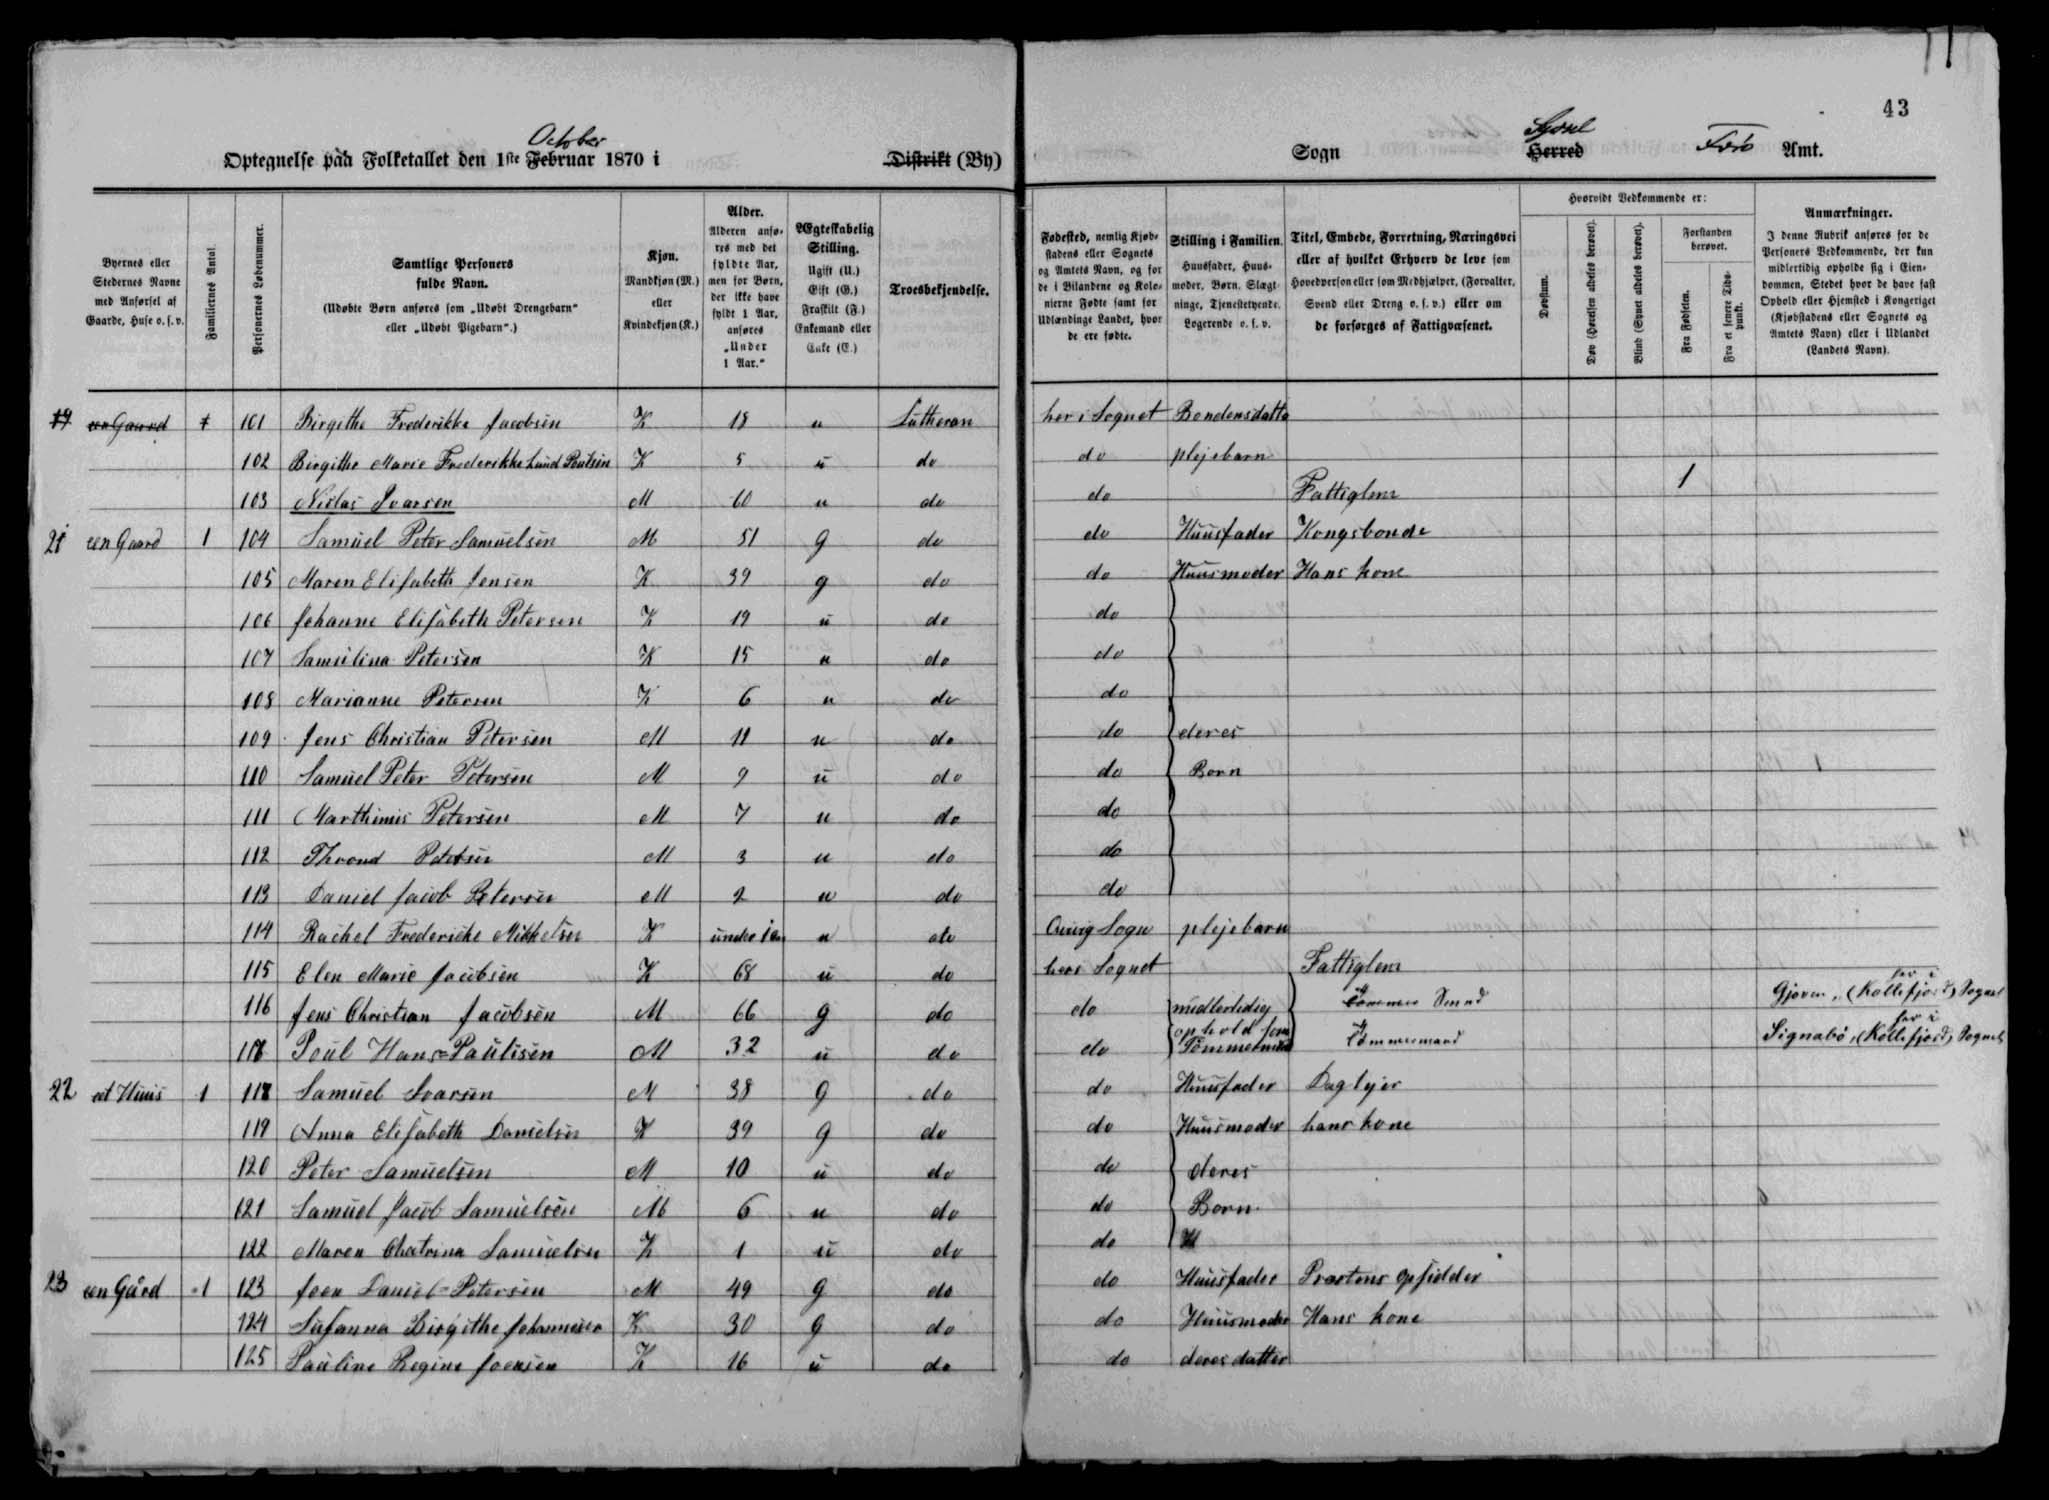 43
October
Optegnelse paa Folketallet den 1ste Februar 1870 i Distrikt (By)
Sogn Sysel Herred Færø Amt.
Byernes eller Stedernes Navne med Anførsel af Gaarde, Huse o. s. v.
Familiernes Antal.
Personernes Løbenummer.
Samtlige Personers fulde Navn.
(Udøbte Børn anføres som „Udøbt Drengebarn“ eller „Udøbt Pigebarn“.)
Kjøn.
Mandkjøn (M.) eller Kvindekjøn (K.)
Alder.
Alderen anføres med det fyldte Aar, men for Børn, der ikke have fyldt 1 Aar, anføres „Under 1 Aar.“
Ægteskabelig Stilling.
Ugift (U.) Gift (G.) Fraskilt (F.) Enkemand eller Enke (E.)
Troesbekjendelse.
Fødested, nemlig Kjøbstadens eller Sognets og Amtets Navn, og for de i Bilandene og Kolonierne Fødte samt for Udlændinge Landet, hvor de ere fødte.
Stilling i Familien.
Huusfader, Huusmoder, Børn, Slægtninge, Tjenestetyende, Logerende o. s. v.
Titel, Embede, Forretning, Næringsvei eller af hvilket Erhverv de leve som Hovedperson eller som Medhjælper, (Forvalter, Svend eller Dreng o. s. v.) eller om de forsørges af Fattigvæsenet.
Hvorvidt Vedkommende er:
Døvstum.
Døv (Hørelsen aldeles berøvet).
Blind (Synet aldeles berøvet).
Forstanden berøvet.
Fra Fødselen.
Fra et senere Tidspunkt.
Anmærkninger.
I denne Rubrik anføres for de Personers Vedkommende, der kun midlertidig opholde sig i Eiendommen, Stedet hvor de have fast Ophold eller Hjemsted i Kongeriget (Kjøbstadens eller Sognets og Amtets Navn) eller i Udlandet (Landets Navn).
19 een Gaard 1 101 Birgithe Frederikke Jacobsen K 18 u Lutheran her i Sognet Bondensdatter
102 Birgithe Marie Frederikke Lund Poulsen K 5 u do do plejebarn
103 Niclas Ivarsen M 60 u do do Fattiglem 1
21 een Gaard 1 104 Samuel Peter Samuelsen M 51 g do do Huusfader Kongsbonde
105 Maren Elisabeth Jensen K 39 g do do Huusmoder Hans kone
106 Johanne Elisabeth Petersen K 19 u do do
107 Samuline Petersen K 15 u do do
108 Marianne Petersen K 6 u do do
109 Jens Christian Petersen M 11 u do do deres
110 Samuel Peter Petersen M 9 u do do Born
111 Marthinus Petersen M 7 u do do
112 Thrond Petersen M 3 u do do
113 Daniel Jacob Petersen M 2 u do do
114 Rachel Frederiche Mikkelsen K under 1 u do Sogn plejebarn
115 Elen Marie Jacobsen K 68 u do her i Sognet Fattiglem
116 Jens Christian Jacobsen M 66 g do do midlertidig Gjoven, (Kollefjord) her i Sognet
117 Poul Hans=Paulisen M 32 u do do ophold som Tommermænd Tommermand Signabø, (Kollefjord) her i Sognet
22 et Huus 1 118 Samuel Ivarsen M 38 g do do Huusfader Daglejer
119 Anna Elisabeth Danielsen K 39 g do do Huusmoder hans kone
120 Peter Samuelsen M 10 u do do deres
121 Samuel Jacob Samuelsen M 6 u do do Born
122 Maren Chatrina Samuelsen K 1 u do do
23 een Gård 1 123 Joen Daniel=Petersen M 49 g do do Huusfader Præstens opsidder
124 Susanna Birgithe Johannesen K 30 g do do Huusmoder Hans kone
125 Pauline Regine Joensen K 16 u do do deres datter